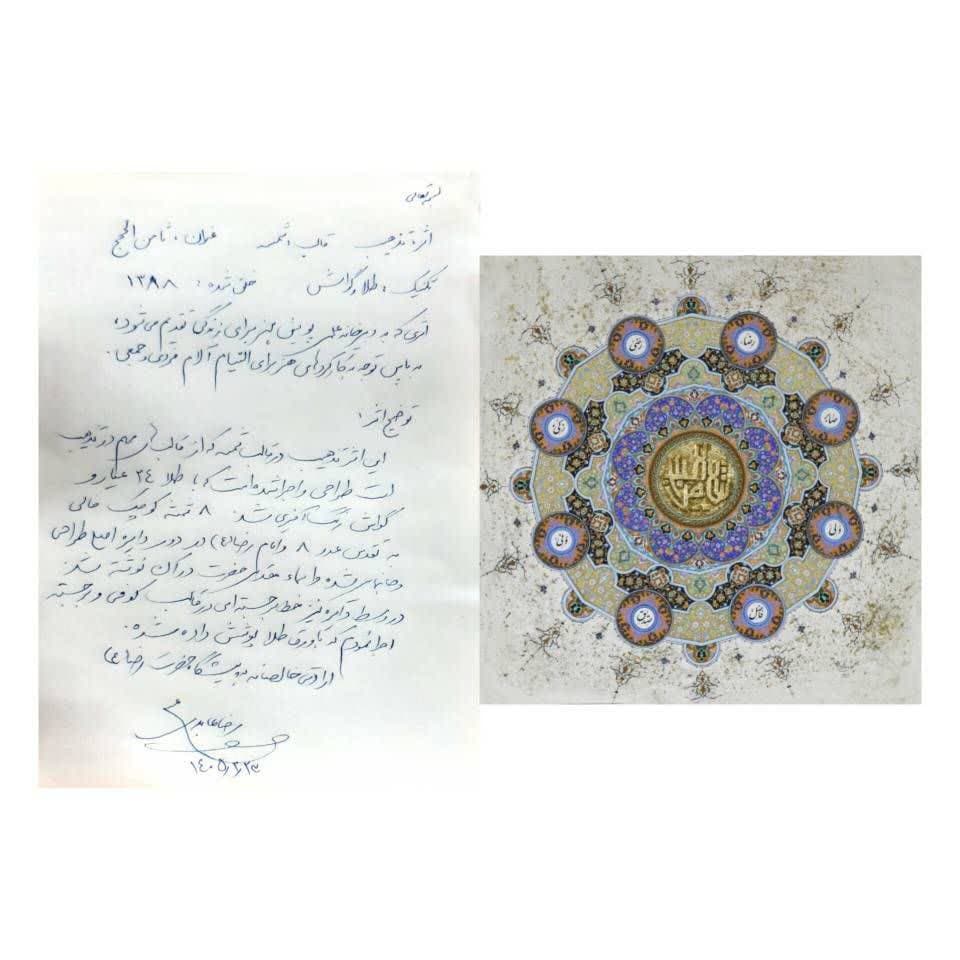 بسمه تعالی
اثر: تذهیب قالب: شمسه عنوان: ثامن الحجج
تکنیک: طلا و گواش خلق شده: ۱۳۹۸
اثری که به دبیرخانه پویش هنر برای زندگی تقدیم می‌شود؛
به پاس توجه به کارکردهای هنر برای التیام آلام فردی و جمعی.
توضیح اثر:
این اثر تذهیب در قالب شمسه که از قالب های مهم در تذهیب
است طراحی و اجرا شده است و با طلا ۲۴ عیار و
گواش رنگ آمیزی شد. ۸ شمسه کوچک خالی
به تقدس عدد ۸ و امام رضا(ع) در دور دایره اصلی طراحی
و جانمایی شده و اسماء حضرت در آن نوشته شد.
در وسط دایره نیز خط برجسته‌ای در قالب کوفی و برجسته
اجرا نمودم که با ورق طلا پوشش داده شده.
ارادتی خالصانه به پیشگاه حضرت رضا(ع)
رضا عابدینی
۱۴۰۵/۲/۲۳
رضا
صابر
ولی
فاضل
صدیق
وفی
زکی
رضی